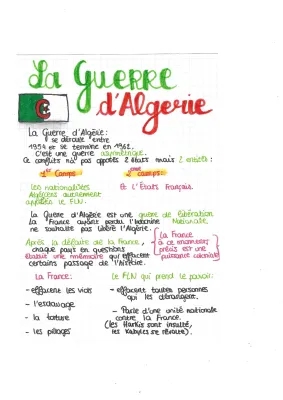 La Guerre
d'Algerie
La Guerre d'Algérie :
se déroule entre
1954 et se termine en 1962.
C'est une guerre asymétrique.
Ce conflits n'a pas opposés 2 états mais 2 entités :
1er Camps
2ème camps.
Les nationalistes
Algériens autrement
appelés le FLN.
Et l'États Français.
La Guerre d'Algérie est une guerre de libération
Nationale.
La France ayant perdu l'Indochine
ne souhaite pas libéré l'Algérie.
Après la défaite de la France,
chaque pays en questions
élabore une mémoire qui effacent
certains passage de l'histoire.
La France
à ce moment
précis est une
puissance coloniale
La France :
- effacent les viols
- l'esclavage
- la torture
- les pillages
Le FLN qui prend le pouvoir :
- effacent toutes personnes
qui les dérangera.
- Parle d'une unité nationale
contre la France.
(les Harkis sont insulté,
les Kabyles se révolte).